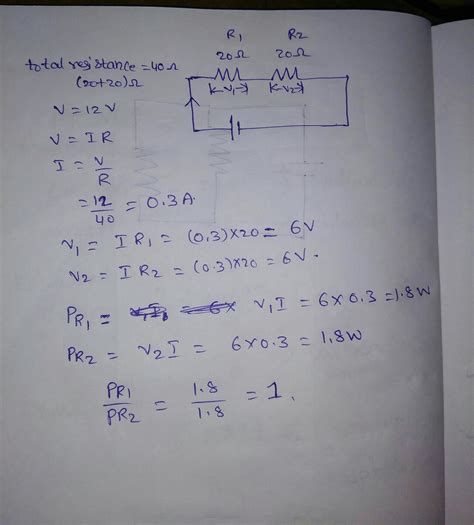 R1 R2
20Ω 20Ω
total resistance = 40Ω
(20+20)Ω
K-V1-> K-V2->
V = 12V
V = IR
I = V/R
= 12/40 = 0.3A.
V1 = IR1 = (0.3)×20 = 6V
V2 = IR2 = (0.3)×20 = 6V.
PR1 = V1I = 6×0.3 = 1.8W
PR2 = V2I = 6×0.3 = 1.8W
PR1/PR2 = 1.8/1.8 = 1.